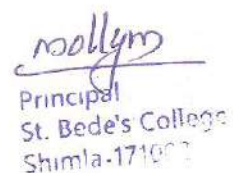 Principal
St. Bede's College
Shimla-171002